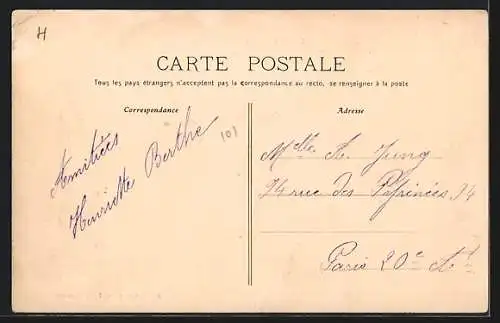 H
CARTE POSTALE
Tous les pays étrangers n'acceptent pas la correspondance au recto, se renseigner à la poste
Correspondance
Adresse
Amitiées
Henriette Berthe
Melle A. Jung
94 rue des Pyrinées 94
Paris 20e At